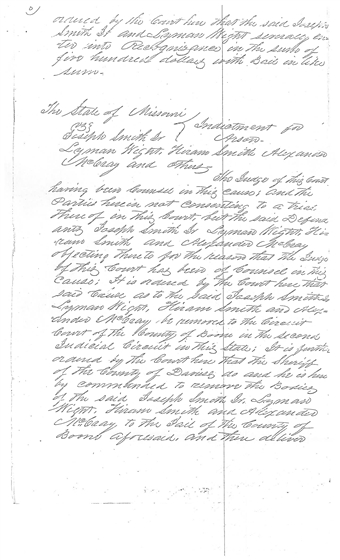 ordered by the Court here that the said Joseph
Smith Jr and Lyman Wight severally en
ter into Recognizance in the sum of
five hundred dollars with Bail in like
sum.
The State of Missouri
vs
Joseph Smith Jr
Indictment for
Arson
Lyman Wight, Hiram Smith Alexander
McCray and others
The Judge of this Court
having been Counsel in this cause; and the
Parties herein not consenting to a trial
thereof in this Court, but the said Defend
ants, Joseph Smith Jr Lyman Wight, Hi
ram Smith and Alexander McCray
objecting thereto for the reason that the Judge
of this Court has been of Counsel in this
Cause; It is ordered by the Court here that
said Cause as to the said Joseph Smith Jr
Lyman Wight, Hiram Smith and Alex
ander McCray be removed to the Circuit
Court of the County of Boone in the second
Judicial Circuit in this State; It is further
ordered by the Court here that the Sheriff
of the County of Daviess do and he is here
by commanded to remove the Bodies
of the said Joseph Smith Jr. Lyman
Wight, Hiram Smith and Alexander
McCray to the Jail of the County of
Boone aforesaid, and there deliver